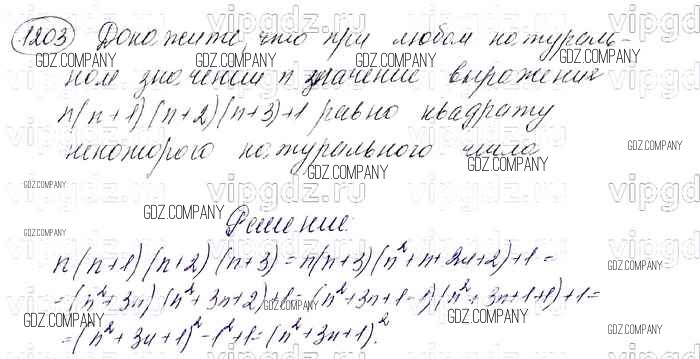 1203 Докажите, что при любом натураль-
ном значении n значение выражения
n(n+1)(n+2)(n+3)+1 равно квадрату
некоторого натурального числа
Решение:
n(n+1)(n+2)(n+3) = n(n+3)(n²+n+2n+2)+1=
=(n²+3n)(n²+3n+2)+1=(n²+3n+1-1)(n²+3n+1+1)+1=
=(n²+3n+1)²-1²+1=(n²+3n+1)².
vipgdz.ru
GDZ.COMPANY